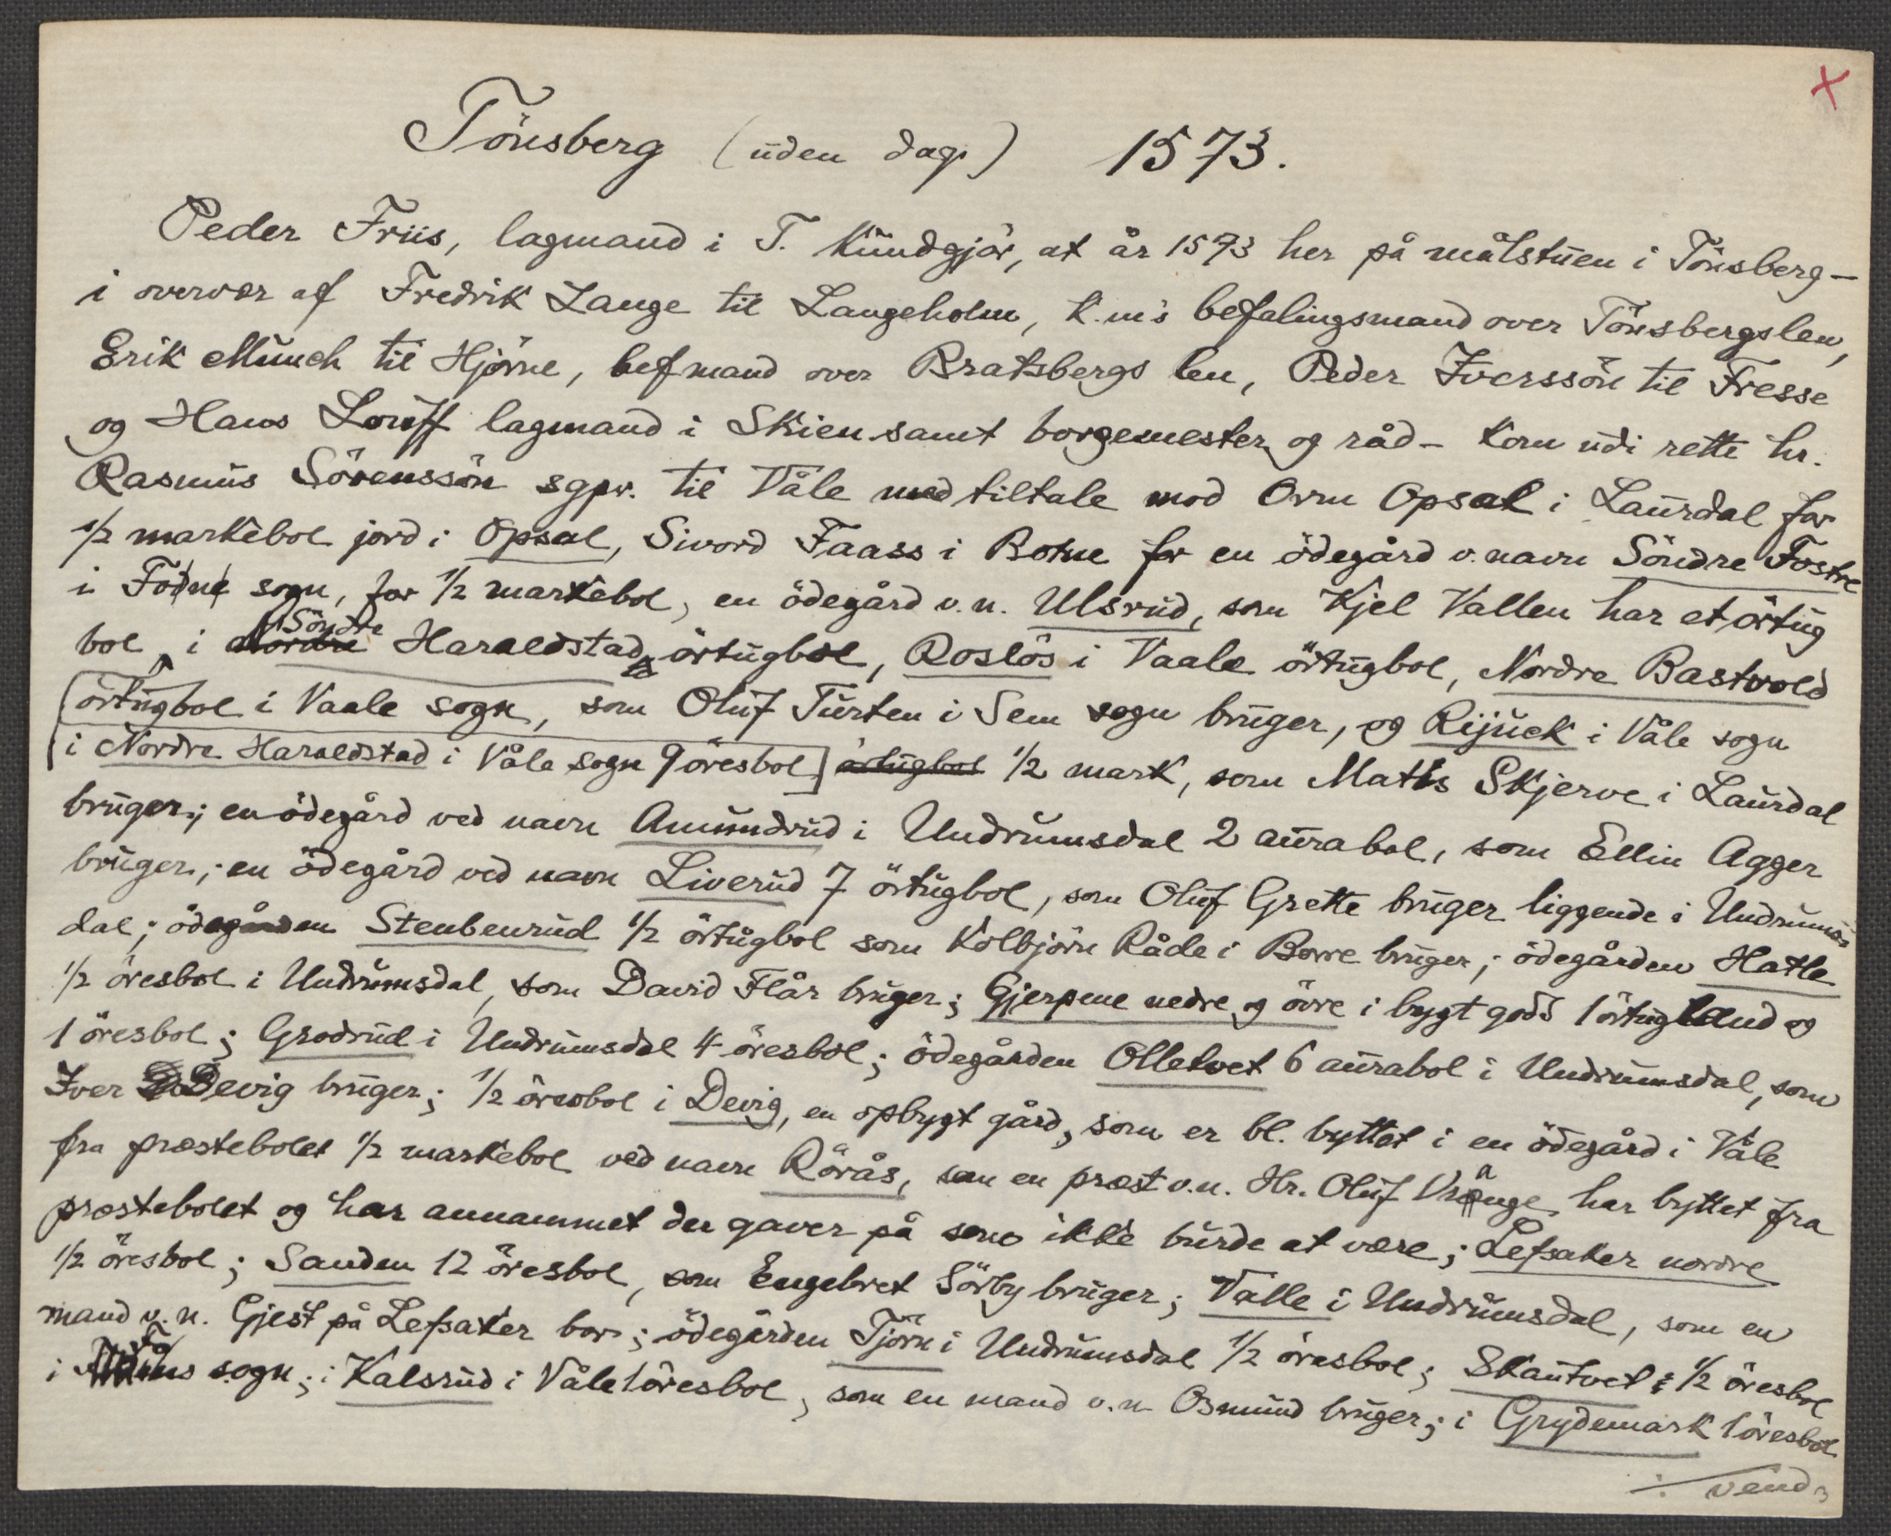 Tönsberg (uden dag.) 1573.
Peder Friis, lagmand i T. kundgjör, at år 1573 her på målstuen i Tönsberg —
i overvær af Fredrik Lange til Langeholm, k.m's befalingsmand over Tönsbergslen,
Erik Munch til Hjörne, befmand over Bratsbergs len, Peder Iverssön til Fresse
og Hans Loriff lagmand i Skien samt borgemester og råd – kom udi rette hr.
Rasmus Sörenssön sgpr. til Våle med tiltale mod Orm Opsal i Laurdal for
1/2 markebol jord i Opsal, Sivord Faass i Botne for en ödegård v. navn Söndre Fostve
i sogn, for 1/2 markebol, en ödegård v.n. Ulsrud, som Kjel Vallen har et örtug
bol, i Nordre Söndre Haraldstad örtugbol, Roslös i Vaale örtugbol, Nordre Bastvold
[örtugbol i Vaale sogn, som Oluf Turten i Sem sogn bruger, og Rijuck i Våle sogn
i Nordre Haraldstad i Våle sogn 9 öresbol] örtugbol 1/2 mark, som Mattis Skjerve i Laurdal
bruger; en ödegård ved navn Amundrud i Undrumsdal 2 aurabol, som Ellin Agger
bruger; en ödegård ved navn Liverud 7 örtugbol, som Oluf Grette bruger liggende i Undrums
dal; ödegården Stenbenrud 1/2 örtugbol som Kolbjörn Råde i Borre bruger; ödegården Hatle
1/2 öresbol i Undrumsdal, som David Flår bruger; Gjerpene nedre og övre i bygt gods 1 örtugland og
1 öresbol; Grodrud i Undrumsdal 4 öresbol; ödegården Olletvet 6 aurabol i Undrumsdal, som
Iver Devig bruger; 1/2 öresbol i Devig, en opbygt gård, som er bl. byttet i en ödegård i Våle
fra præstebolet 1/2 markebol ved navn Rörås, som en præst v.n. Hr. Oluf Vrange har byttet fra
præstebolet og har annammet der gaver på som ikke burde at være; Lefsaker nordre
1/2 öresbol; Sanden 12 öresbol, som Engebret Sörby bruger; Valle i Undrumsdal, som en
mand v.n. Gjest på Lefsaker bor; ödegården Tjörn i Undrumsdal 1/2 öresbol; Skautvet 1/2 öresbol
i sogn; i Kalsrud i Våle 1 öresbol, som en mand v.n. Osmund bruger; i Grydemark 1 öresbol
vend